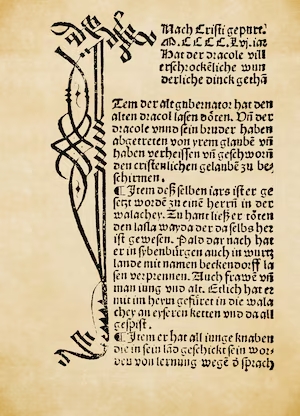 Nach Cristi gepurt
M.CCCC.Lvi.iar
Hat der dracole vill
erschrockēliche wun
derliche dinck gethā
Item der alt gubernator hat den
alten dracol lasen dōten. Vñ der
dracole vnnd sein bruder haben
abgetreten von yrem glaubē vñ
haben verheissen vñ geschworn
den cristenlichen glaubē zu be-
schirmen.
¶ Item desselben iars ist er ge
setzt wordē zu eine herrn in der
walachey. Zu hant ließ er tōten
den lasla wayda der da selbs her
ist gewesen. Pald dar nach hat
er in sybenbürgen auch in wurtz
lande mit namen beckendorff la
sen verprennen. Auch frawen vñ
man iung vnd alt. Etlich hat er
mit im heyn gefüret in die wala
chey an eyseren ketten vnd da all
gespist.
¶ Item er hat all iunge knaben
die in sein lād geschickt sein wor-
den von lernung wegē ď sprach